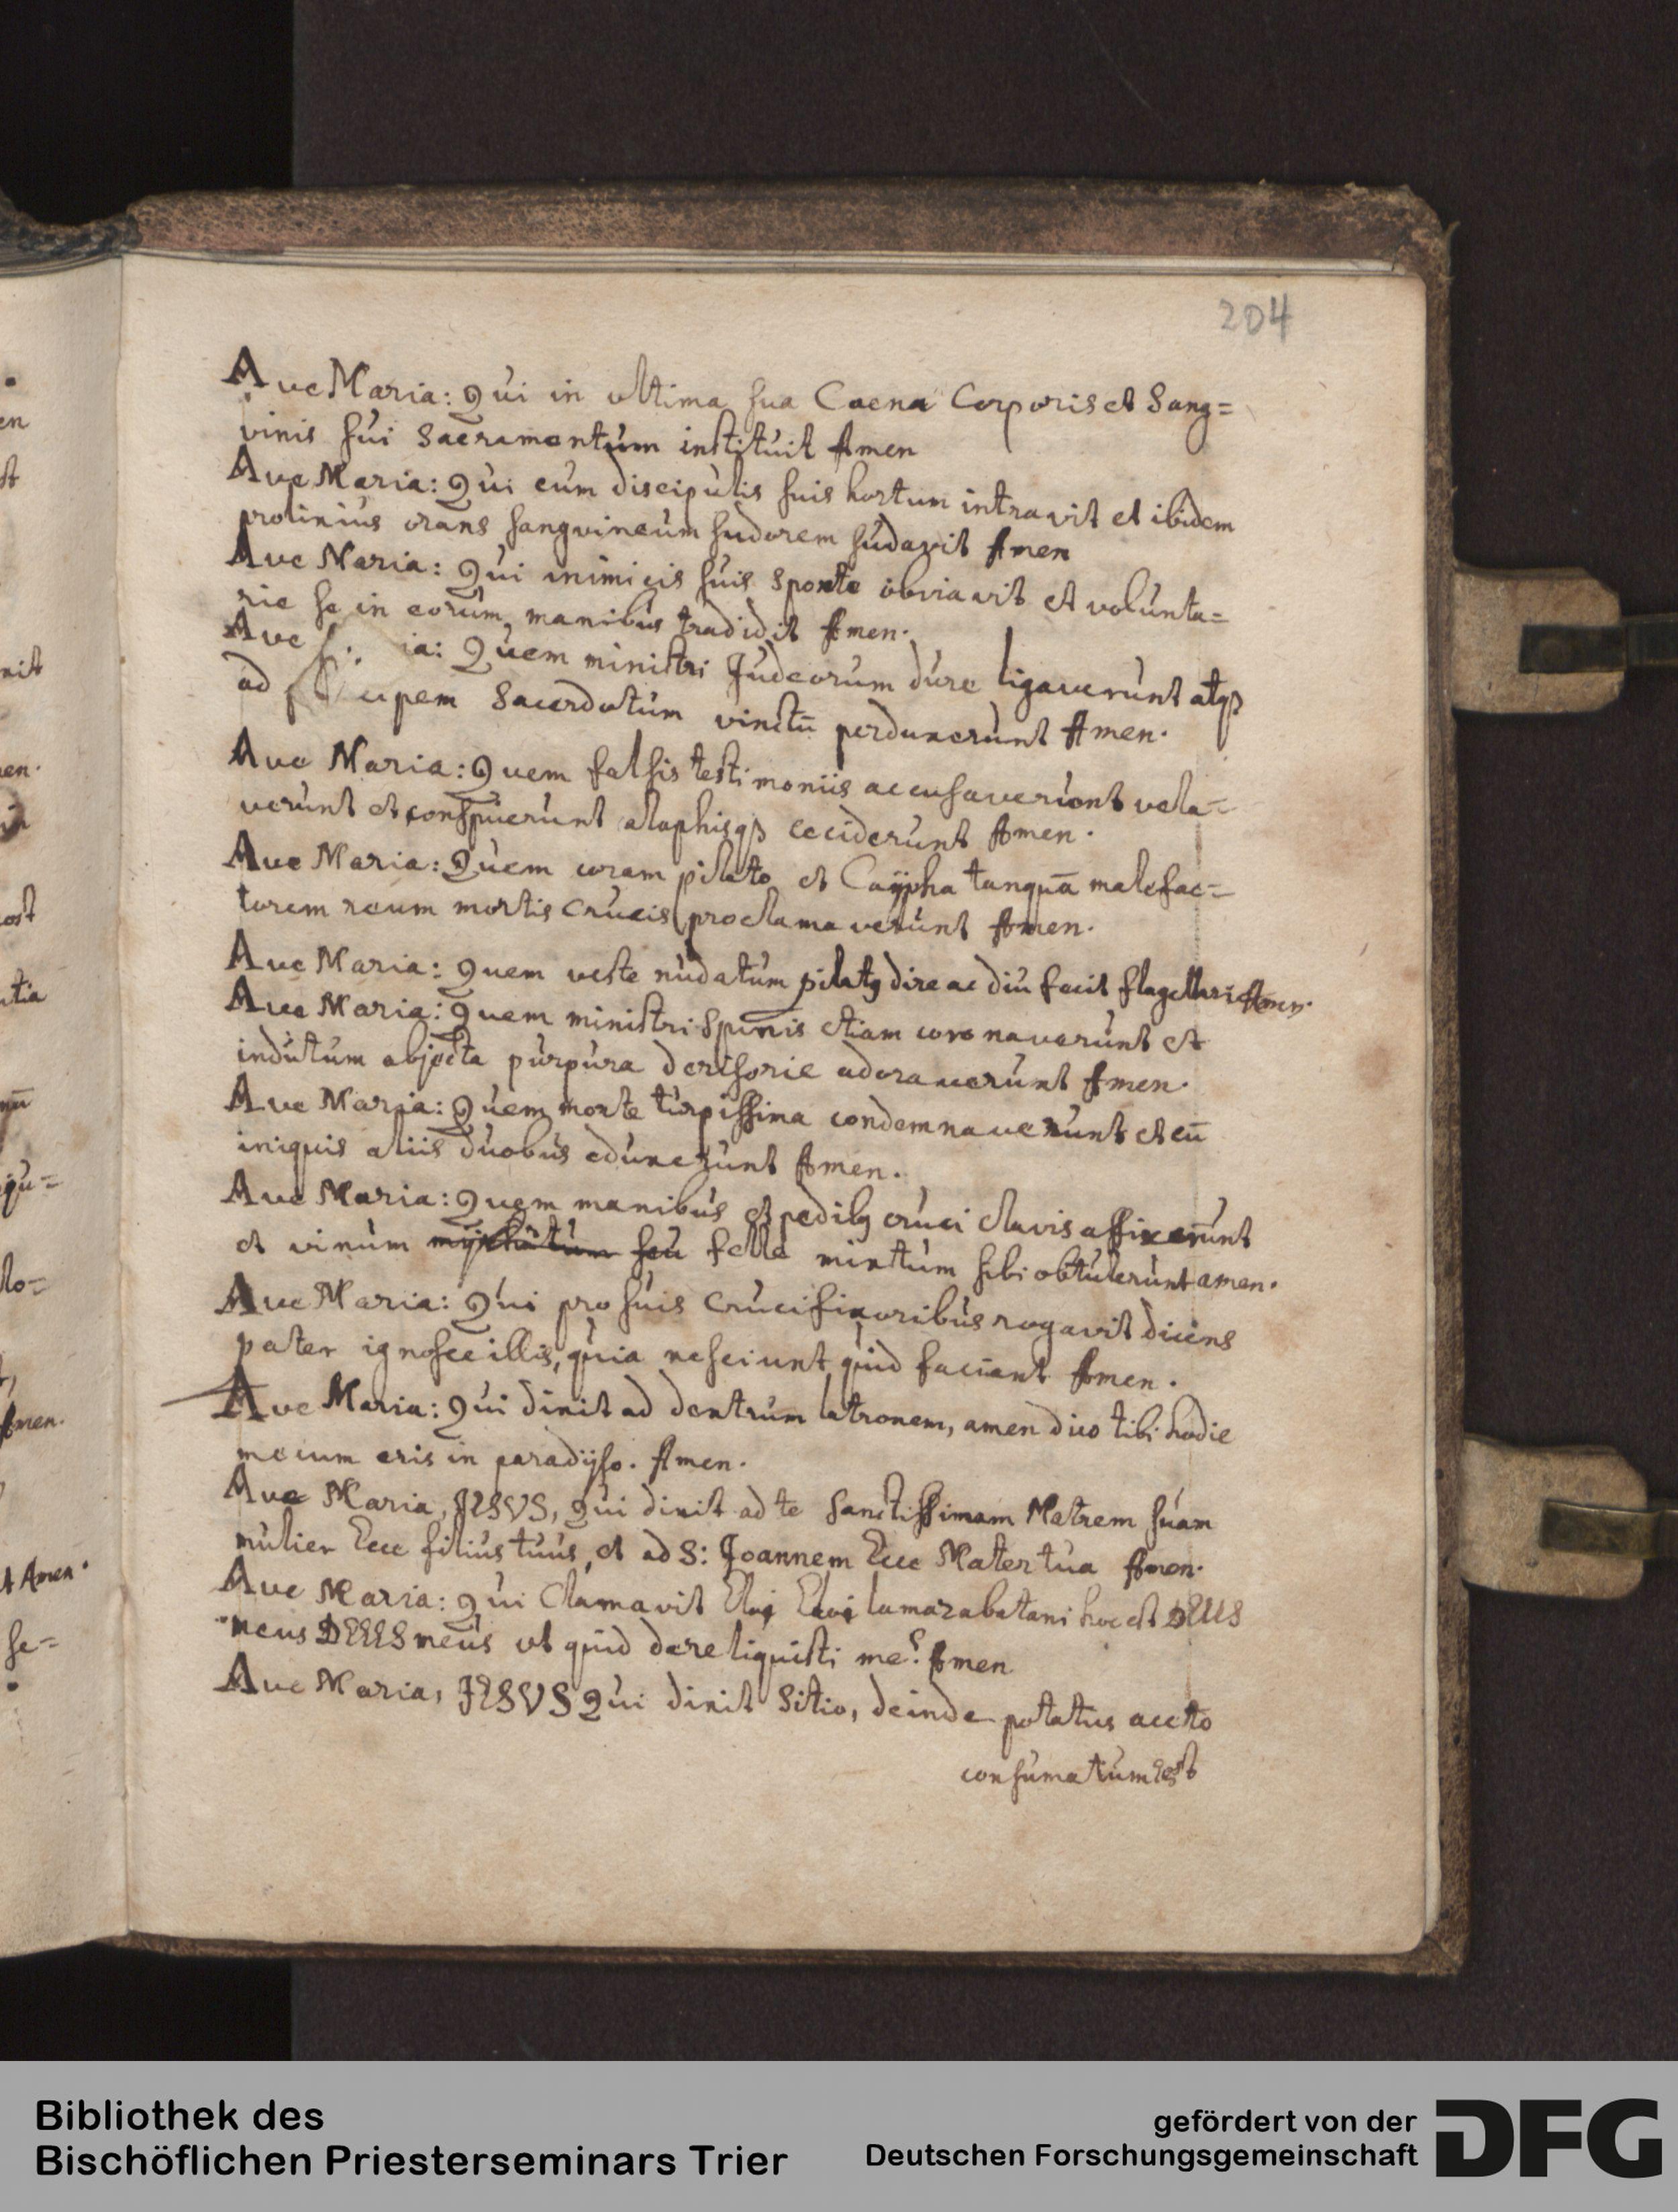 204
Ave Maria: Qui in ultima sua Caena Corporis et Sang=
vinis sui Sacramentum instituit Amen
Ave Maria: Qui cum discipulis suis hortum intravit et ibidem
prolixius orans sangvineum sudorem sudavit Amen
Ave Maria: Qui inimicis suis sponte obviavit et volunta=
rie se in eorum manibus tradidit Amen.
Ave ia: Quem ministri Judeorum dure ligaverunt atqз
ad cipem Sacerdotum vinctū perduxerunt Amen.
Ave Maria: Quem falsis testimoniis accusaverunt vela=
verunt et conspuerunt alaphisqз ceciderunt Amen.
Ave Maria: Quem coram pilato et Caypha tanquā malefac=
torem reum mortis Crucis proclamaverunt Amen.
Ave Maria: Quem veste nudatum pilatꝯ dire ac diu fecit flagellari Amen.
Ave Maria: Quem ministri Spinis etiam coronaverunt et
indutum abjecta purpura derisorie adoraverunt Amen.
Ave Maria: Quem morte turpissima condemnaverunt et cū
iniquis aliis duobus eduxerunt Amen.
Ave Maria: Quem manibus et pedibꝯ cruci clavis affixerunt
et vinum seu felle mixtum sibi obtulerunt amen.
Ave Maria: Qui pro suis Crucifixoribus rogavit dicens
pater ignosce illis, quia nesciunt quid faciant Amen.
Ave Maria: Qui dixit ad dextrum latronem, amen dico tibi hodie
mecum eris in paradÿso. Amen.
Ave Maria, JESVS, qui dixit ad te Sanctissimam Matrem suam
mulier Ecce filius tuus, et ad S: Joannem Ecce Mater tua Amen.
Ave Maria: qui Clamavit Eloi Eloi lamazabatani hoc est DEUS
meus DEUS meus ut quid dereliquisti me? Amen
Ave Maria, JESVS Qui dixit Sitio, deinde potatus aceto
consumatum est
en
st
nit
en.
in
ost
ntia
nū
equ=
lo=
Amen.
t Amen.
se=
Bibliothek des
Bischöflichen Priesterseminars Trier
gefördert von der
Deutschen Forschungsgemeinschaft
DFG